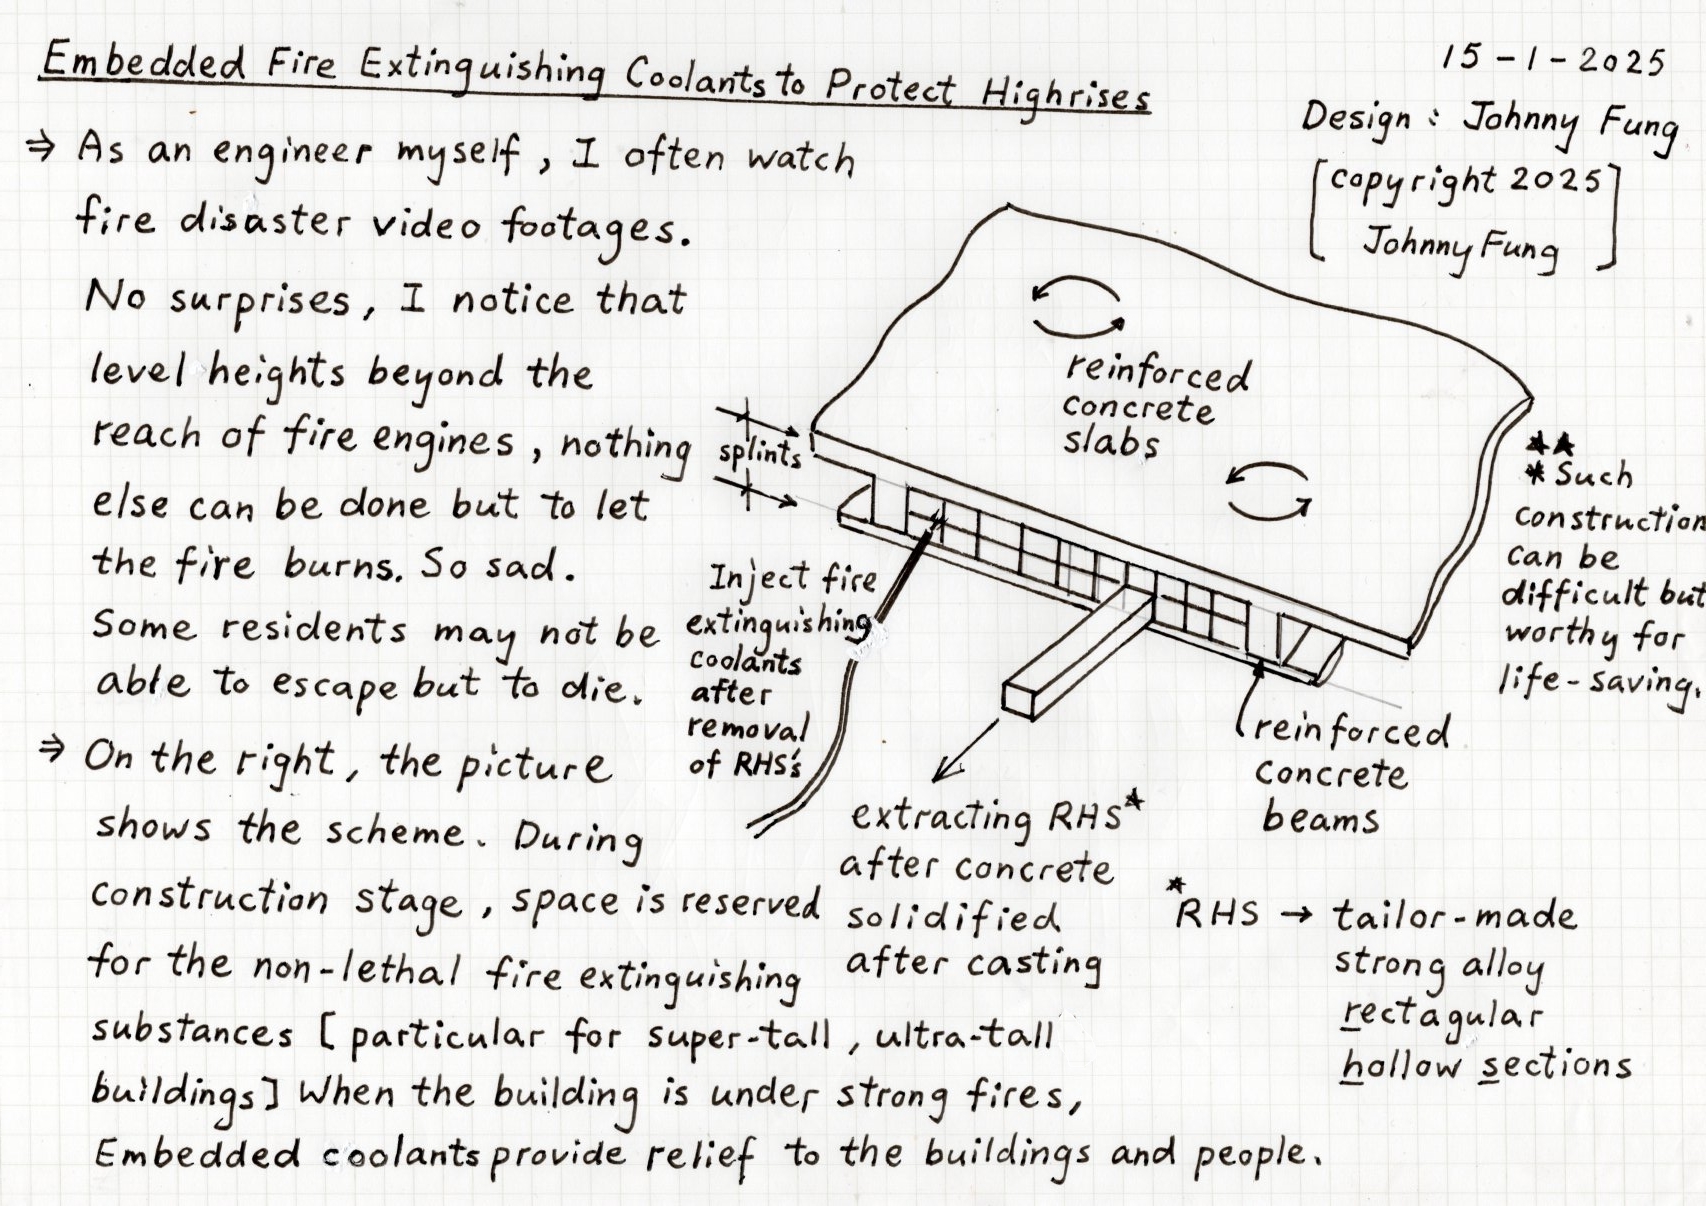 Embedded Fire Extinguishing Coolants to Protect Highrises
15-1-2025
Design : Johnny Fung
[copyright 2025
Johnny Fung]
⇒ As an engineer myself, I often watch
fire disaster video footages.
No surprises, I notice that
level heights beyond the
reach of fire engines, nothing
else can be done but to let
the fire burns. So sad.
Some residents may not be
able to escape but to die.
⇒ On the right, the picture
shows the scheme. During
construction stage, space is reserved
for the non-lethal fire extinguishing
substances [particular for super-tall, ultra-tall
buildings] When the building is under strong fires,
Embedded coolants provide relief to the buildings and people.
reinforced
concrete
slabs
splints
Inject fire
extinguishing
coolants
after
removal
of RHS's
extracting RHS*
after concrete
solidified
after casting
reinforced
concrete
beams
***Such
construction
can be
difficult but
worthy for
life-saving.
*RHS → tailor-made
strong alloy
rectagular
hollow sections